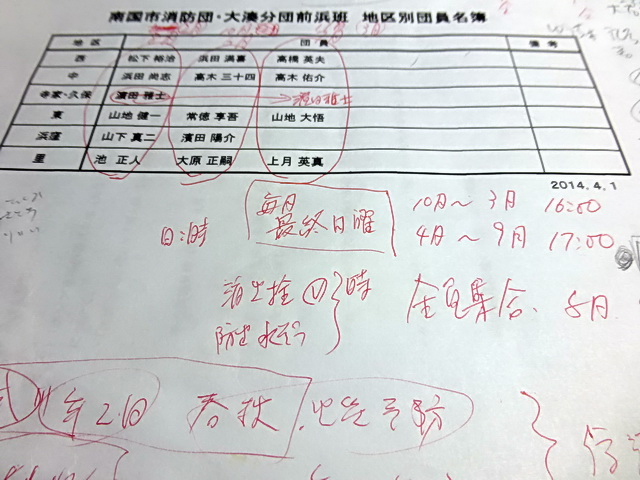 南国市消防団・大湊分団前浜班 地区別団員名簿
地区 団員 備考
西 松下 裕治 浜田 満喜 高橋 英夫
中 浜田 尚志 高木 三十四 高木 佑介
寺家・久保 濱田 雅士
東 山地 健一 常徳 享吾 山地 大悟
浜窪 山下 真二 濱田 陽介
里 池 正人 大原 正嗣 上月 英真
2014.4.1
毎月 10月～3月 16:00
日:時 最終日曜 4月～9月 17:00
消火栓 時 全員集合 8月
防火水そう
年2回 春秋 火災予防